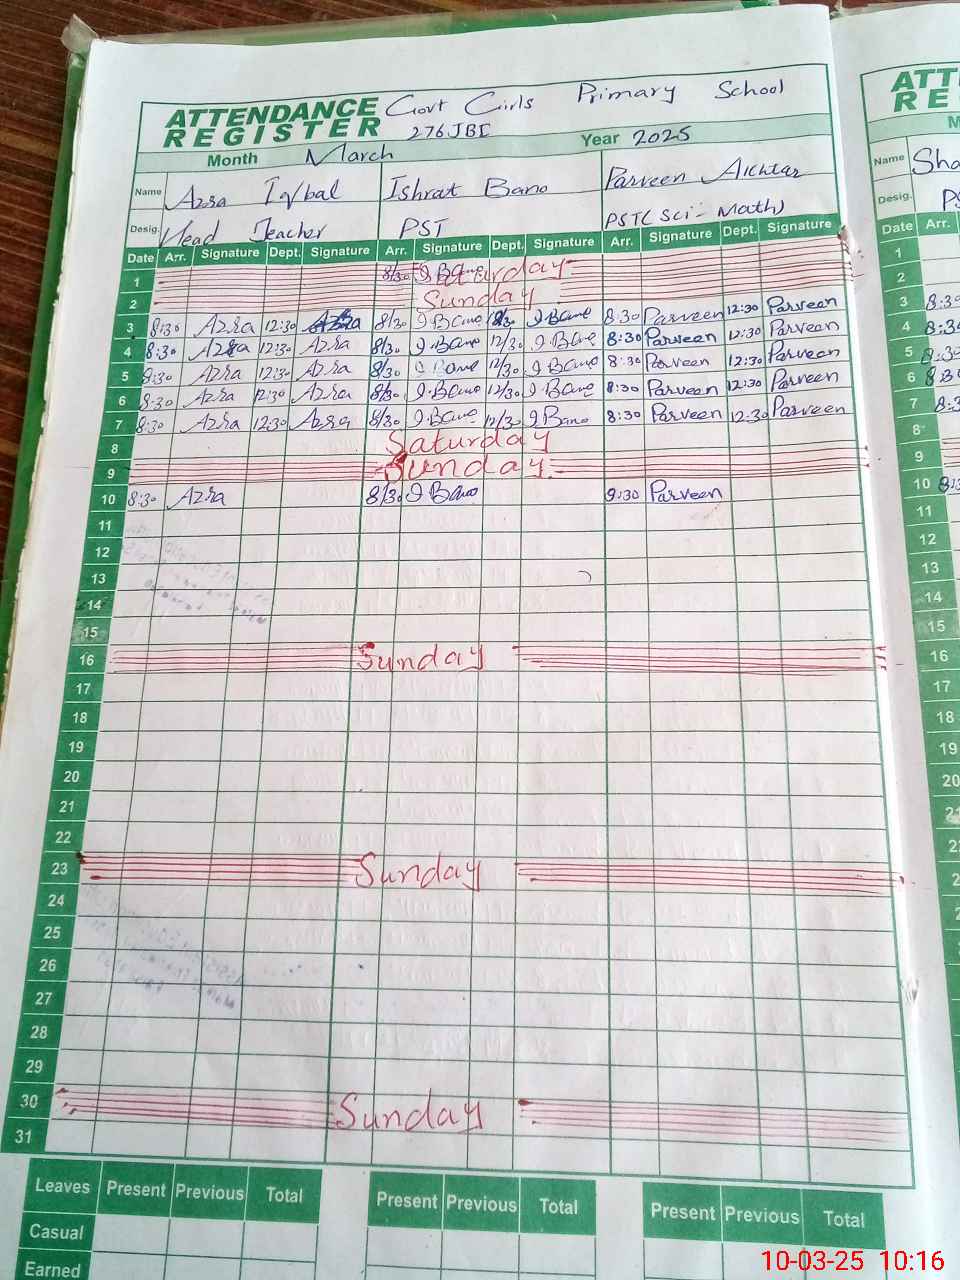 ATTENDANCE REGISTER Govt Girls Primary School
276JBI
Month March Year 2025
Name Azra Iqbal Ishrat Bano Parveen Akhtar
Desig. Head Teacher PST PST( Sci - Math)
Date Arr. Signature Dept. Signature Arr. Signature Dept. Signature Arr. Signature Dept. Signature
1 8/30 I Bano Saturday
2 Sunday
3 8:30 Azra 12:30 Azra 8/30 I Bano I Bano 8:30 Parveen 12:30 Parveen
4 8:30 Azra 12:30 Azra 8/30 I Bano 12/30 I Bano 8:30 Parveen 12:30 Parveen
5 8:30 Azra 12:30 Azra 8/30 I Bano 12/30 I Bano 8:30 Parveen 12:30 Parveen
6 8:30 Azra 12:30 Azra 8/30 I.Bano 12/30 I Bano 8:30 Parveen 12:30 Parveen
7 8:30 Azra 12:30 Azra 8/30 I.Bano 12/30 I Bano 8:30 Parveen 12:30 Parveen
8 Saturday
9 Sunday
10 8:30 Azra 8/30 I Bano 9:30 Parveen
11
12
13
14
15
16 Sunday
17
18
19
20
21
22
23 Sunday
24
25
26
27
28
29
30 Sunday
31
Leaves Present Previous Total Present Previous Total Present Previous Total
Casual
Earned
ATT
RE
M
Name Sha
Desig. PS
Date Arr.
1
2
3 8:30
4 8:30
5 8:30
6 8:30
7 8:3
8
9
10 8:3
11
12
13
14
15
16
17
18
19
20
21
2
2
10-03-25 10:16